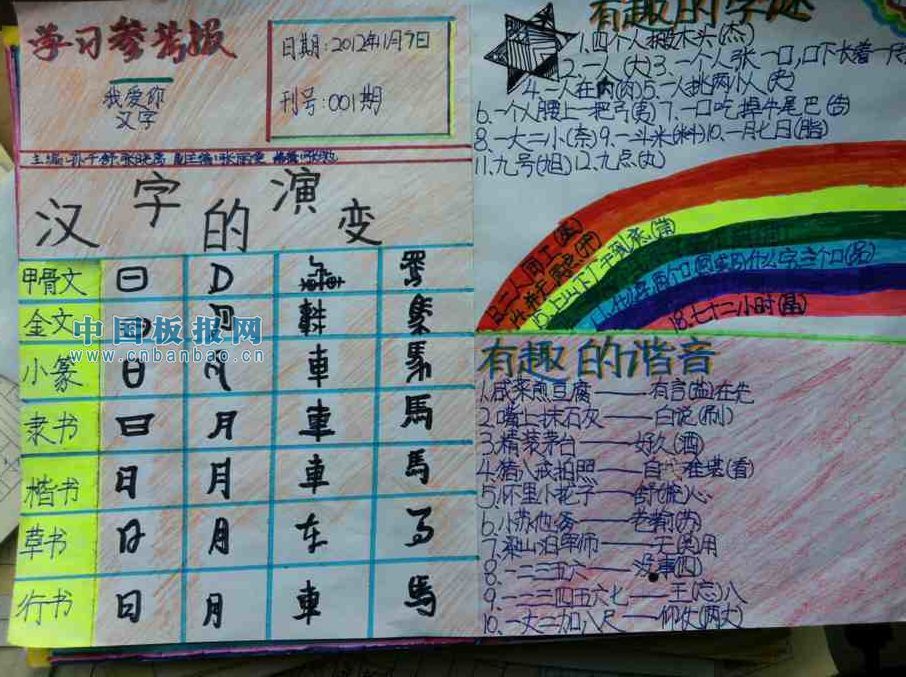 学习参考报
我爱你
汉字
日期:2012年1月9日
刊号:001期
汉字的演变
甲骨文
金文
小篆 日 月 車 馬
隶书 日 月 車 馬
楷书 日 月 車 馬
草书 日 月 车 马
行书 日 月 車 馬
中国板报网
www.cnbanbao.cn
有趣的字谜
1.四个人搬木头(杰)
2.一人(大)3.一个人张一口,口下长着一
4.一人在内(肉)5.一人挑两个小人(夾)
6.一个人腰上一把弓(夷)7.一口吃掉牛尾巴(告)
8.一大二小(奈)9.一斗米(料)10.一月七日(脂)
11.九号(旭)12.九点(丸)
18.七十二小时(晶)
有趣的谐音
1.咸菜煎豆腐——有言(盐)在先
2.嘴上抹石灰——白说(刷)
3.精装茅台——好久(酒)
4.猪八戒拍照——自 难堪(看)
5.怀里小花子——舒(梳)心
6.小苏他爹——老输(苏)
7.梁山泊军师——无(吴)用
8.一二三五六——没事(四)
9.一二三四五六七——王(忘)八
10.一丈二加八尺——仰仗(两丈)